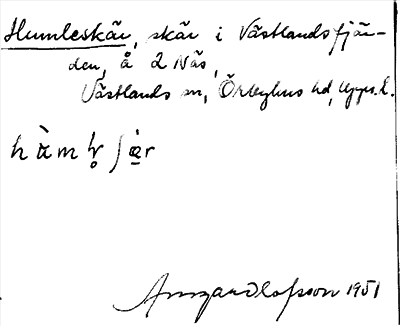 Humleskär, skär i Västlandsfjär-
den, å 2 Näs,
Västlands sn, Örbyhus hd, Upps. l.
Ansgar Olofsson 1951